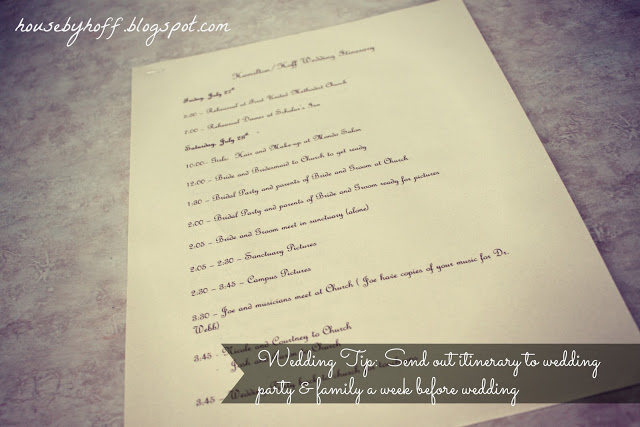 housebyhoff.blogspot.com
Hamilton/Hoff Wedding Itinerary
Friday, July 25th
5:30 - Rehearsal at First United Methodist Church
7:00 - Rehearsal Dinner at Scholar's Inn
Saturday, July 26th
10:00 - Girls: Hair and Make-up at Mondo Salon
12:00 - Bride and Bridesmaid to Church to get ready
1:30 - Bridal Party and parents of Bride and Groom at Church
2:00 - Bridal Party and parents of Bride and Groom ready for pictures
2:05 - Bride and Groom meet in sanctuary (alone)
2:05 - 2:30 - Sanctuary Pictures
2:30 - 3:45 - Campus Pictures
3:30 - Joe and musicians meet at Church ( Joe have copies of your music for Dr.
Webb)
3:45 - Nicole and Courtney to Church
Church
3:45 - 
Wedding Tip: Send out itinerary to wedding
party & family a week before wedding